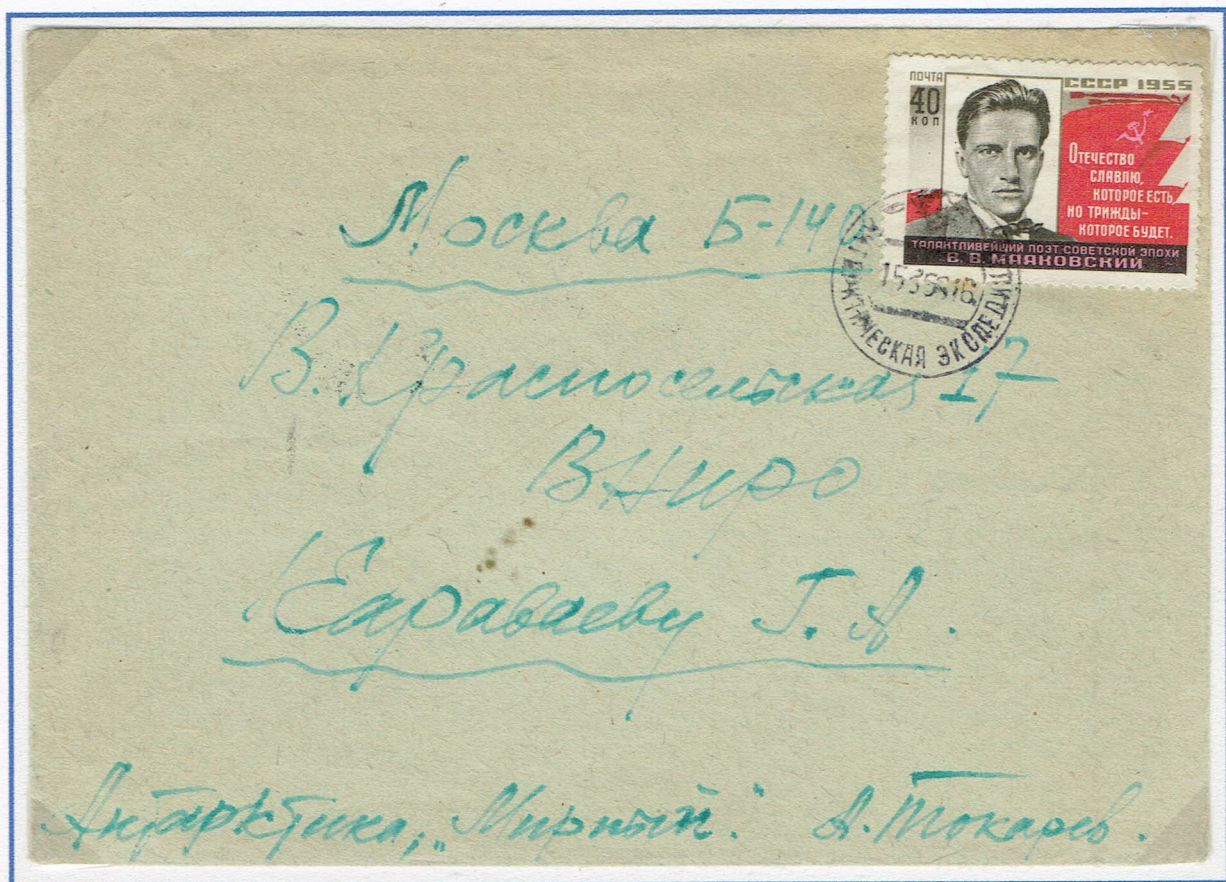 ПОЧТА
40
КОП
СССР 1955
ОТЕЧЕСТВО
СЛАВЛЮ,
КОТОРОЕ ЕСТЬ,
НО ТРИЖДЫ-
КОТОРОЕ БУДЕТ.
ТАЛАНТЛИВЕЙШИЙ ПОЭТ СОВЕТСКОЙ ЭПОХИ
В. В. МАЯКОВСКИЙ
АНТАРКТИЧЕСКАЯ ЭКСПЕДИЦИЯ
Москва Б-140
В. Красносельская 17
ВНИРО
Караваеву Г. А.
Антарктика, „Мирный". А. Токарев.